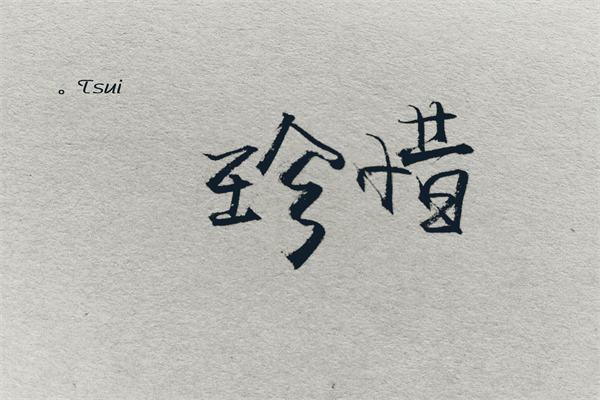 。Tsui
珍惜